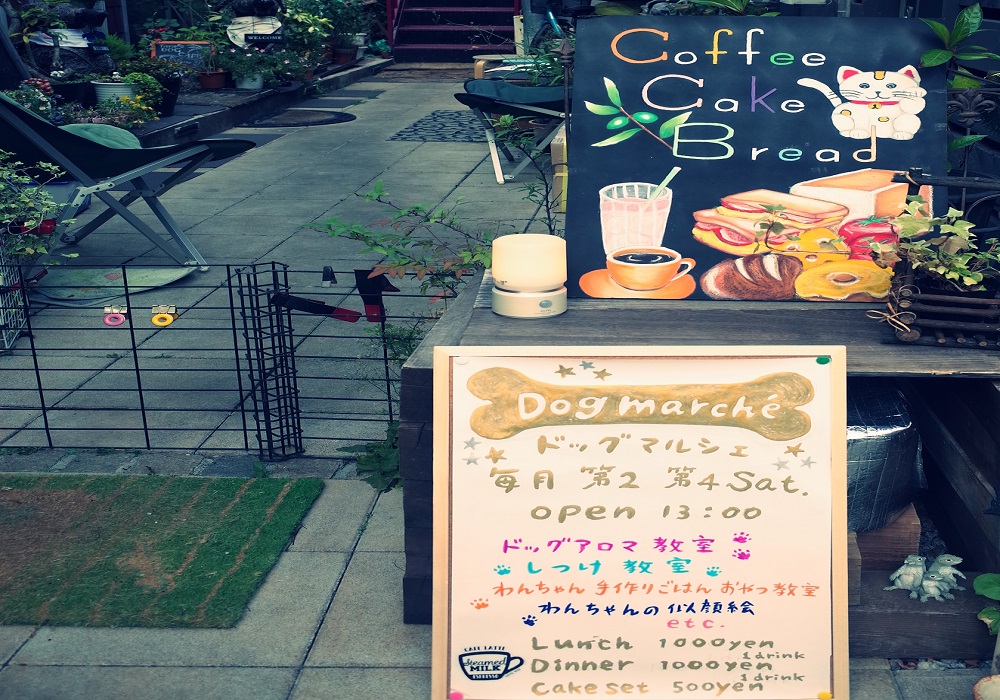 WELCOME
Coffee
Cake
Bread
Dog marché
ドッグマルシェ
毎月 第2 第4 Sat.
open 13:00
ドッグアロマ 教室
しつけ 教室
わんちゃん 手作りごはん おやつ教室
わんちゃんの似顔絵
etc.
Lunch 1000yen
1drink
Dinner 1000yen
1drink
Cake set 500yen
CAFE LATTE
Steamed
MILK
ESPRESSO